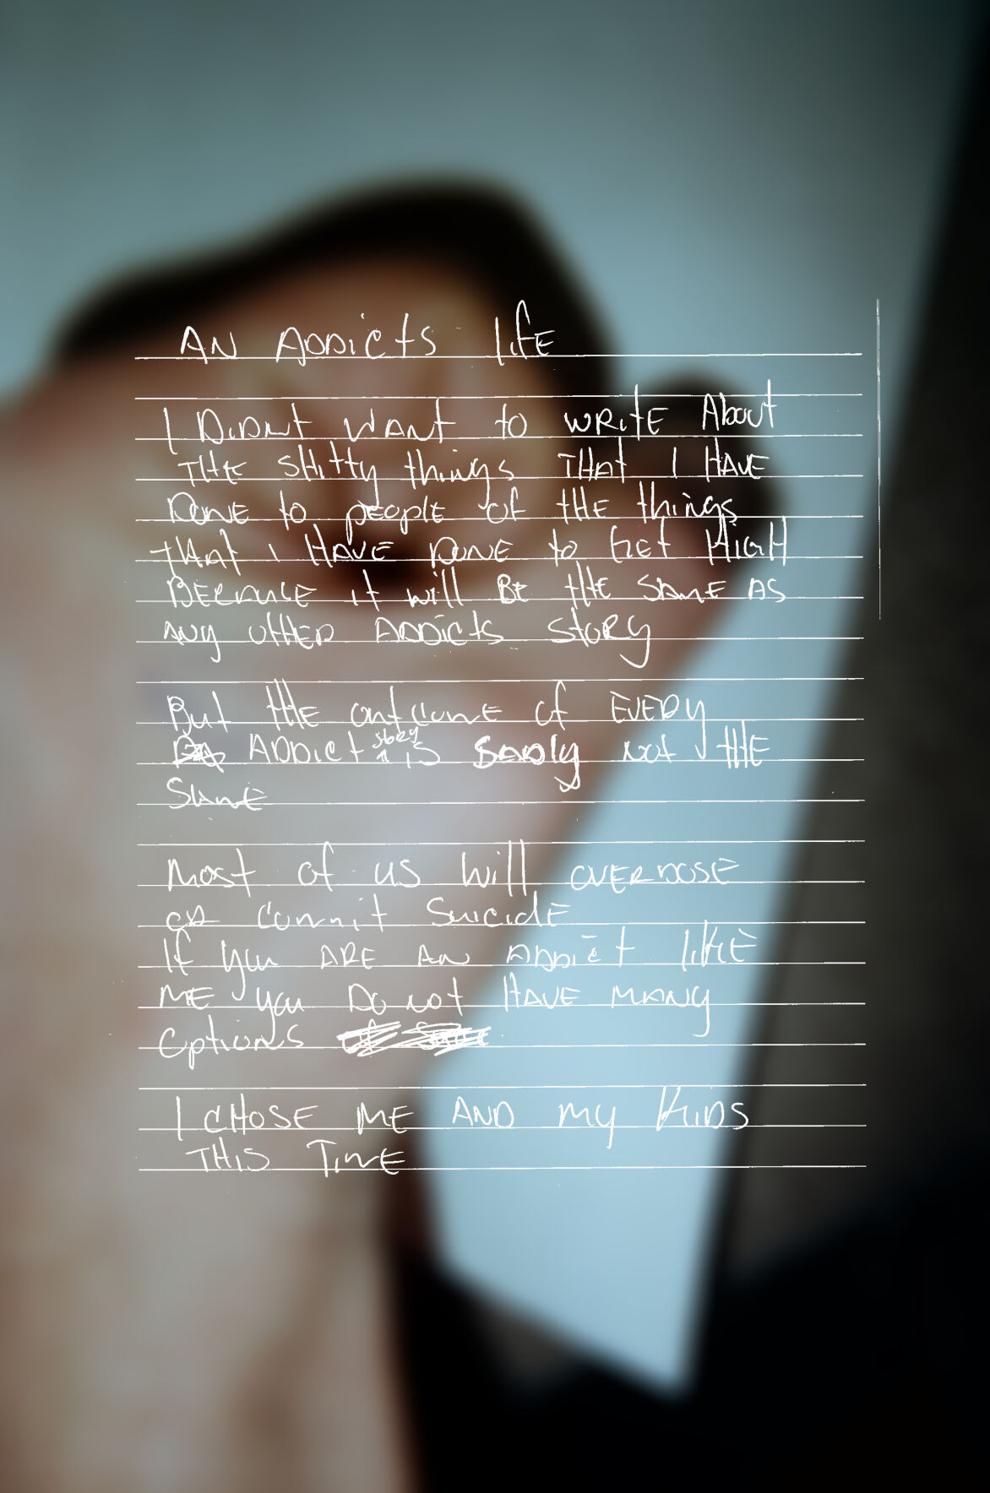 AN ADDicts LifE
I DiDNt WANt to WRitE About
THE SHitty things THAt I HAVE
DONE to pEoplE of tHE things
tHAt I HAVE DONE to GEt HiGH
BECAUSE it will BE tHE SAME AS
ANY otHER ADDicts stORy
But tHE outcomE of EVERy
ADDict story iS SADLy not tHE
SAME
Most of us will OVERDOSE
OR Commit SuicidE
If you ARE AN ADDict likE
ME you Do not HAVE MANy
Options
I CHOSE ME AND MY KiDS
THiS TiME